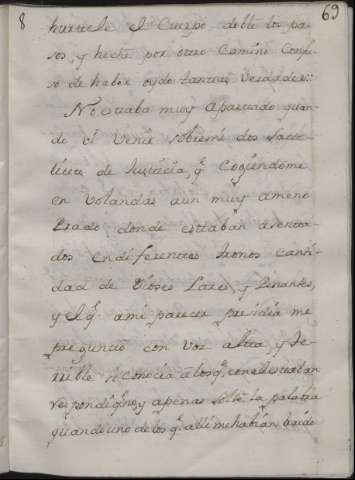 8 69
hurtele el Cuerpo, doble los pa-
sos, y heche por otro Camino Confu-
so de haber oydo tantas Verdades::
No estaba muy apartado quan-
do vi Venir sobremi dos Sate-
lites de Justicia, q̃ Cogiendome
en volandas aun muy ameno
Prado donde estaban asenta-
dos en diferentes tronos canti-
dad de Dioses Lares, y Penantes,
y el q̃ ami parecer presidia me
preguntó con voz altiva y te-
rrible si conocia a los q̃ con el estaban
respondi q̃ no, y apenas solté la palabra
quando uno de los q̃ alli me habian traido